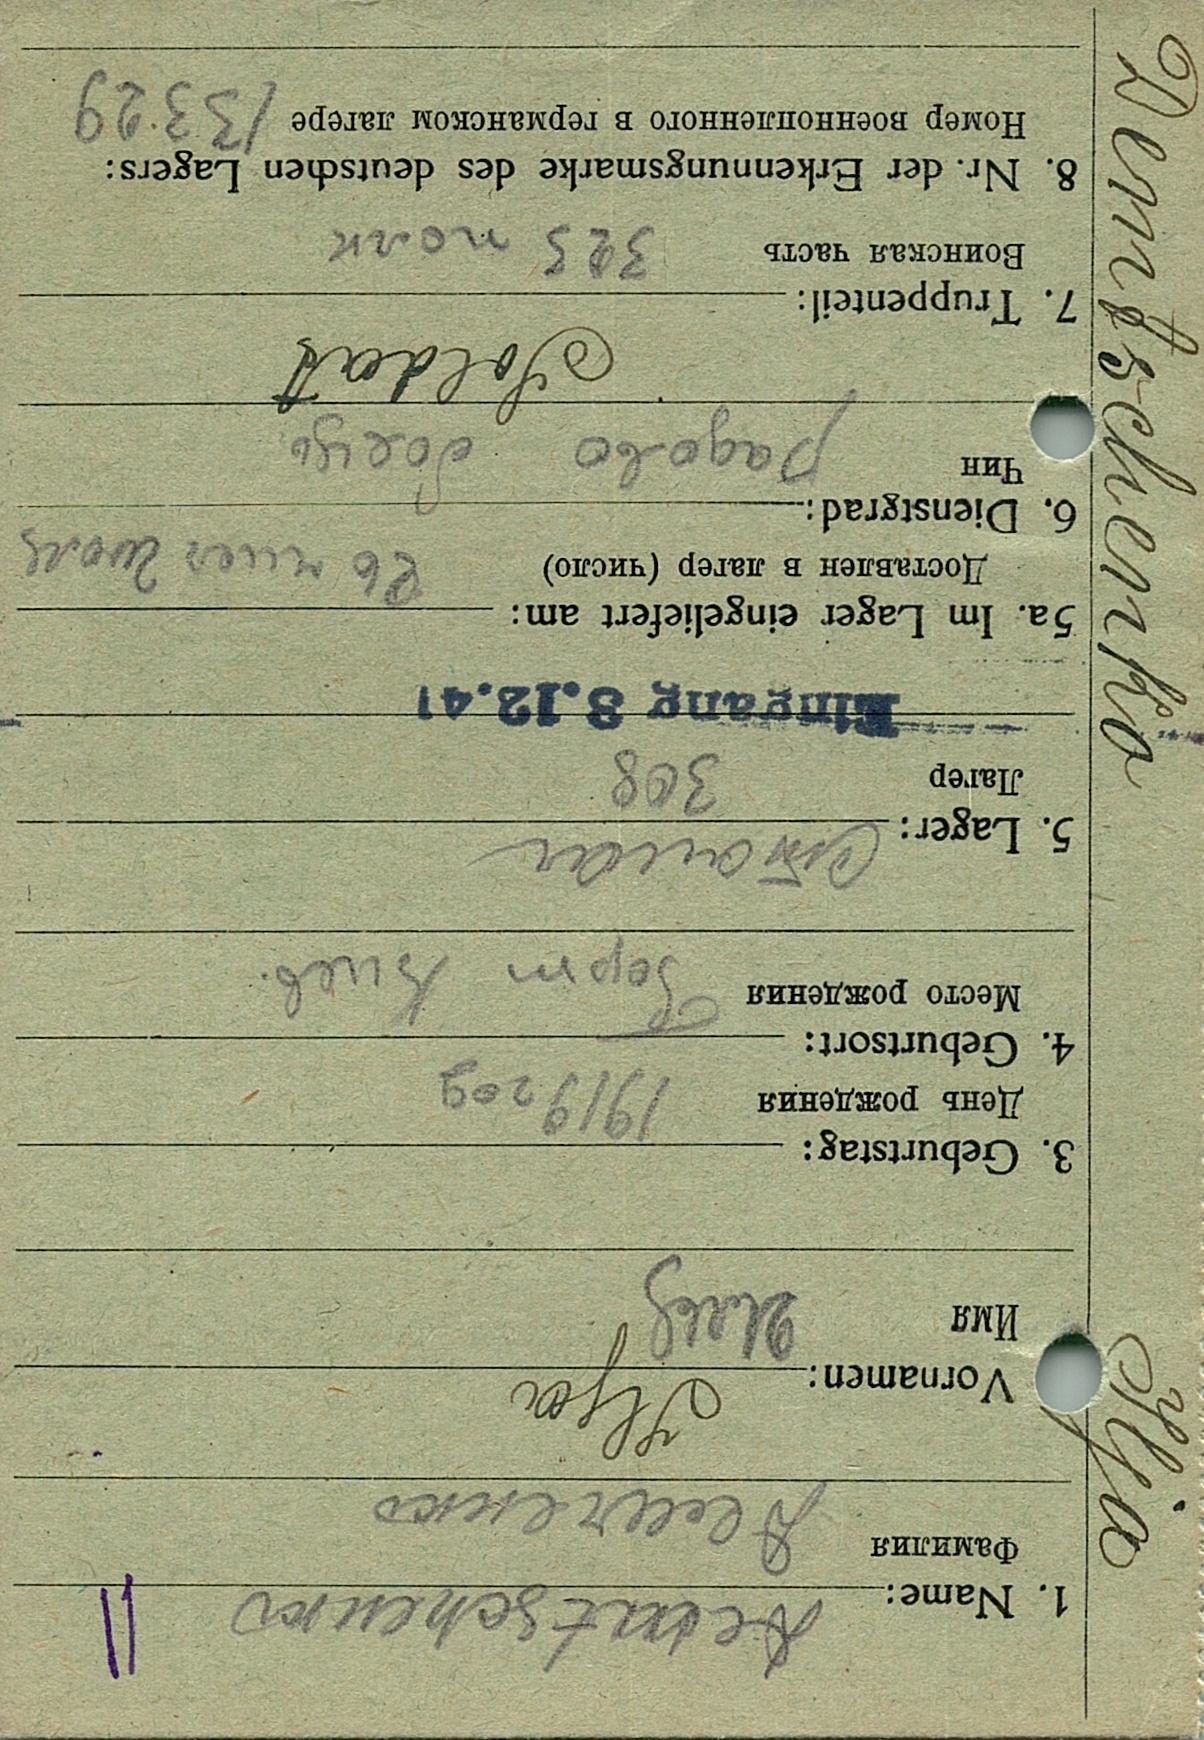 Demtschenko Ilja
1. Name: Demtschenko
Фамилия Демченко
Vornamen: Ilja
Имя Илья
3. Geburtstag:
День рождения 1919 год
4. Geburtsort:
Место рождения Киев.
5. Lager:
Лагерь 308
Eingang 3.12.41
5a. Im Lager eingeliefert am:
Доставлен в лагерь (число) 26
6. Dienstgrad:
Чин рядово боец
Soldat
7. Truppenteil:
Воинская часть 325 полк
8. Nr. der Erkennungsmarke des deutschen Lagers:
Номер военнопленного в германском лагере 13329